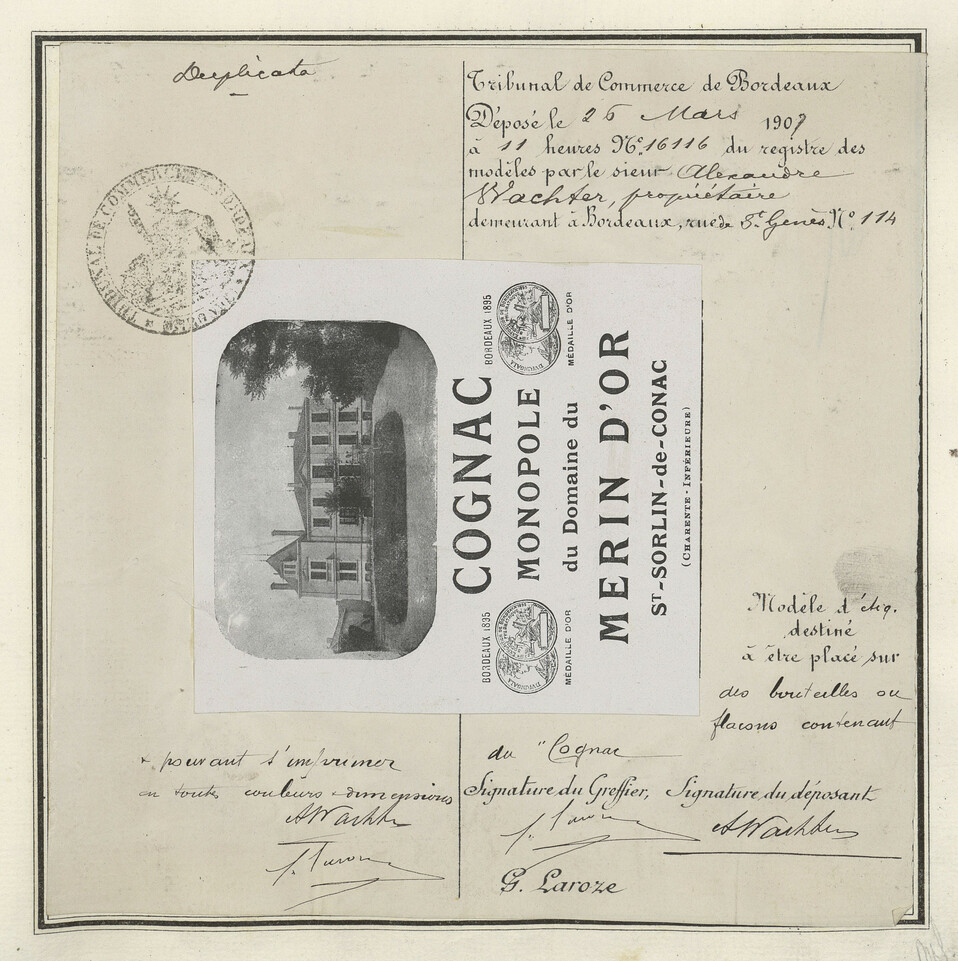 Duplicata
Tribunal de Commerce de Bordeaux
Déposé le 26 Mars 1907
à 11 heures No. 16116 du registre des
modèles par le sieur Alexandre
Wachter, propriétaire
demeurant à Bordeaux, rue de St. Genès No. 114
TRIBUNAL DE COMMERCE DE BORDEAUX
COGNAC
BORDEAUX 1895
MÉDAILLE D'OR
BORDEAUX 1895
MÉDAILLE D'OR
MONOPOLE
du Domaine du
MERIN D'OR
ST-SORLIN-de-CONAC
(CHARENTE-INFÉRIEURE)
Modèle d'étiq.
destiné
à être placé sur
des bouteilles ou
flacons contenant
du "Cognac
+ pouvant s'imprimer
en toutes couleurs & dimensions
AWachter
Signature du Greffier, Signature du déposant
AWachter
G. Laroze